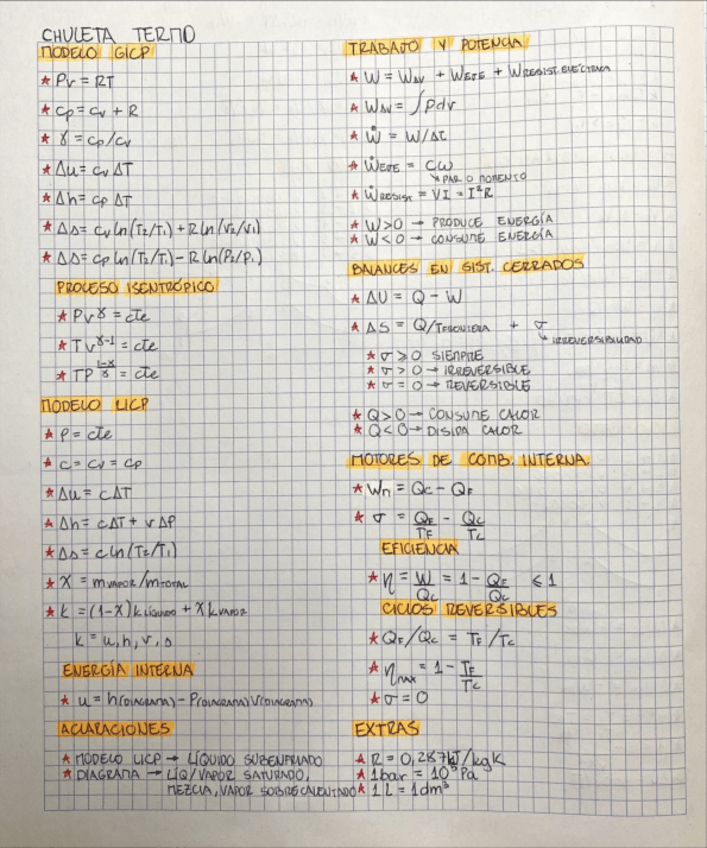 CHULETA TERMO
MODELO GICP
* Pv = RT
* cp = cv + R
* γ = cp/cv
* Δu = cv ΔT
* Δh = cp ΔT
* Δs = cv ln(T2/T1) + R ln(v2/v1)
* Δs = cp ln(T2/T1) - R ln(P2/P1)
PROCESO ISENTRÓPICO
* Pv^γ = cte
* Tv^(γ-1) = cte
* TP^((1-γ)/γ) = cte
MODELO LICP
* ρ = cte
* c = cv = cp
* Δu = cΔT
* Δh = cΔT + vΔp
* Δs = c ln(T2/T1)
* X = mVAPOR/mTOTAL
* k = (1-X) k LÍQUIDO + X k VAPOR
k = u, h, v, s
ENERGÍA INTERNA
* u = h(DIAGRAMA) - P(DIAGRAMA) V(DIAGRAMA)
ACLARACIONES
* MODELO LICP → LÍQUIDO SUBENFRIADO
* DIAGRAMA → LÍQ/VAPOR SATURADO,
MEZCLA, VAPOR SOBRECALENTADO
TRABAJO Y POTENCIA
* W = WΔV + WEJE + WRESIST. ELÉCTRICA
* WΔV = ∫pdv
* Ẇ = W/Δt
* ẆEJE = Cω
↘ PAR O MOMENTO
* ẆRESIST = VI = I²R
* W>0 → PRODUCE ENERGÍA
* W<0 → CONSUME ENERGÍA
BALANCES EN SIST. CERRADOS
* ΔU = Q - W
* ΔS = Q/TFRONTERA + σ
↳ IRREVERSIBILIDAD
* σ ≥ 0 SIEMPRE
* σ > 0 → IRREVERSIBLE
* σ = 0 → REVERSIBLE
* Q>0 → CONSUME CALOR
* Q<0 → DISIPA CALOR
MOTORES DE COMB. INTERNA.
* Wn = QC - QF
* σ = QF/TF - QC/TC
EFICIENCIA
* η = W/QC = 1 - QF/QC ≤ 1
CICLOS REVERSIBLES
* QF/QC = TF/TC
* ηmax = 1 - TF/TC
* σ = 0
EXTRAS
* R = 0,287 kJ/kgK
* 1bar = 10⁵ Pa
* 1 L = 1dm³